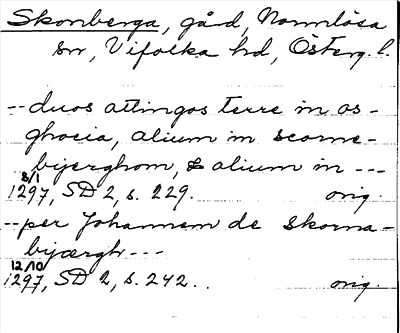 Skonberga, gård, Normlösa
sn, Vifolka hd, Österg. l.
-- duos attingos terre in os-
ghocia, alium in scorne-
bijerghom, & alium in ---
8/1
1297, SD 2, s. 229. orig.
-- per Johannem de skorna-
bijærgh ---
12/10
1297, SD 2, s. 242. . orig.